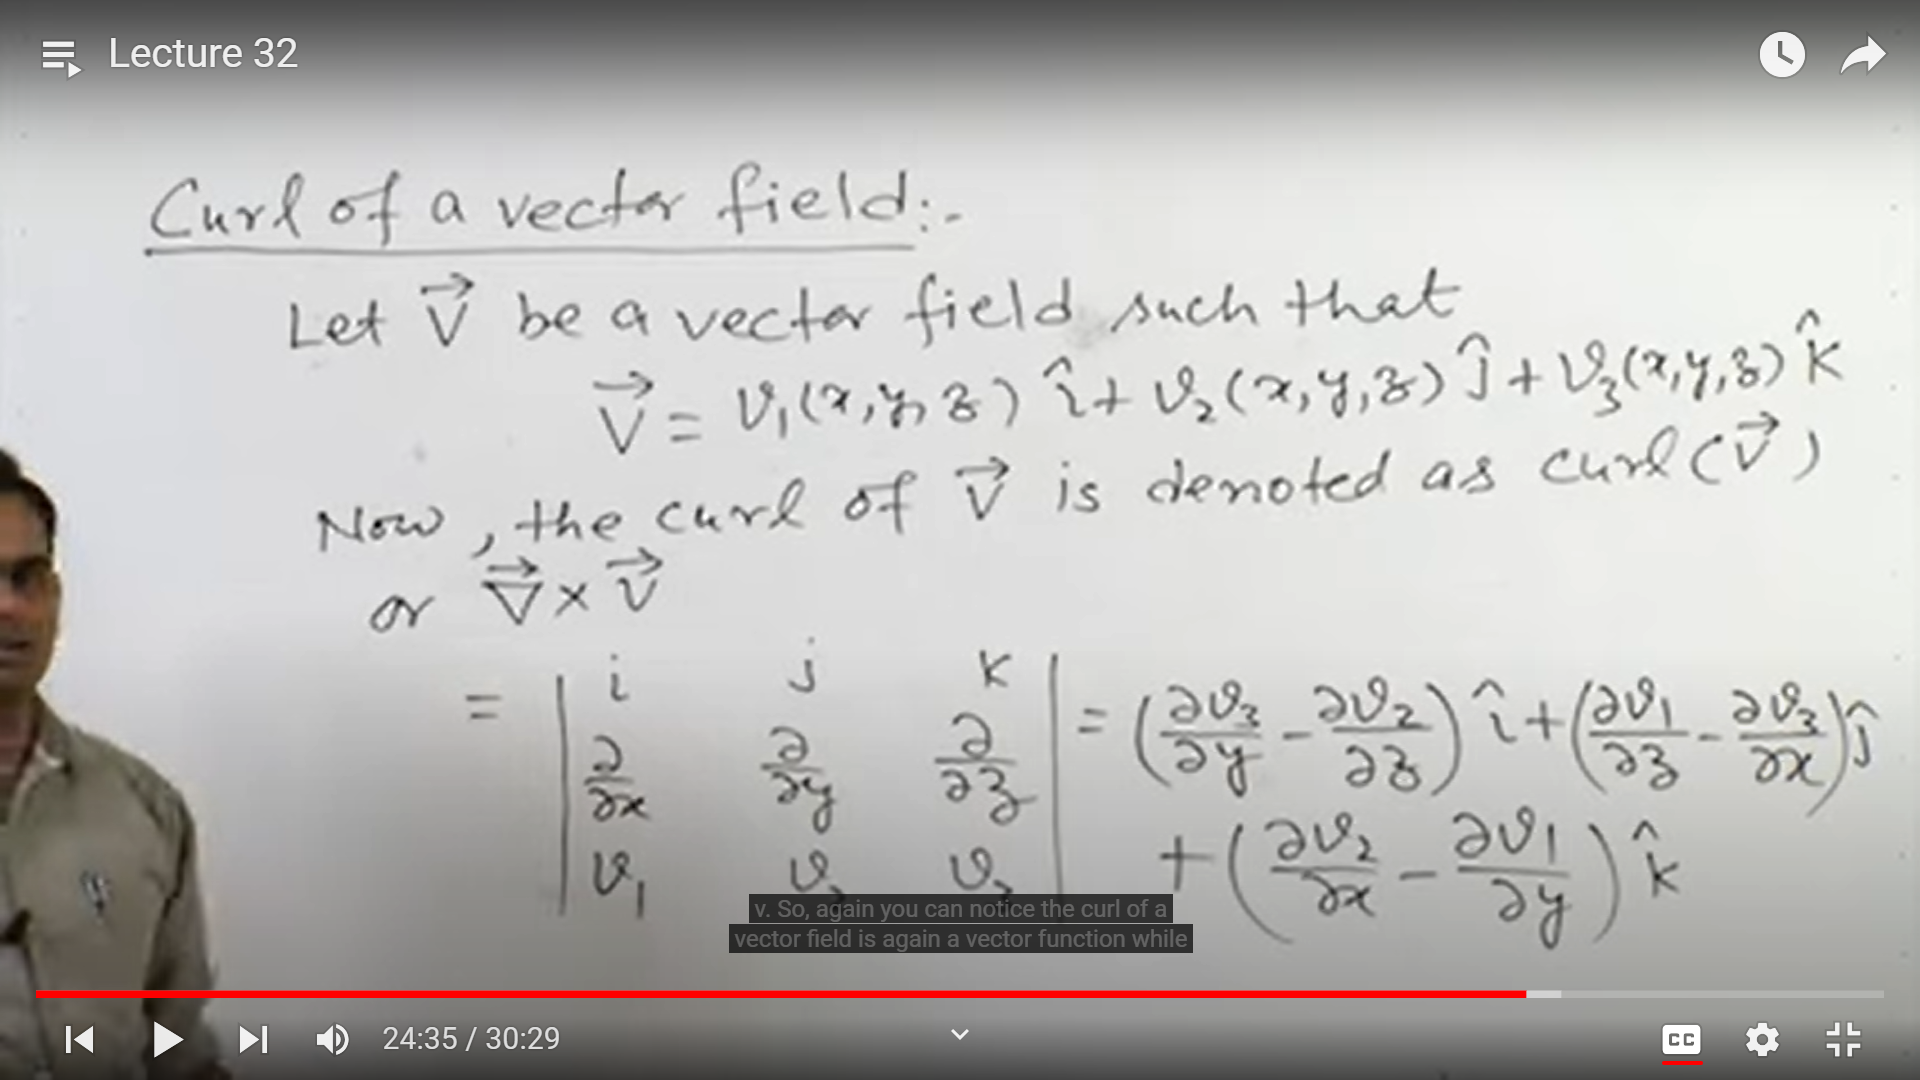 Lecture 32
Curl of a vector field:-
Let V⃗ be a vector field such that
V⃗ = v₁(x,y,z) î + v₂(x,y,z) ĵ + v₃(x,y,z) k̂
Now, the curl of V⃗ is denoted as curl(V⃗)
or ∇⃗ × V⃗
= | i j k |
| ∂/∂x ∂/∂y ∂/∂z |
| v₁ v₂ v₃ |
= (∂v₃/∂y − ∂v₂/∂z) î + (∂v₁/∂z − ∂v₃/∂x) ĵ
+ (∂v₂/∂x − ∂v₁/∂y) k̂
v. So, again you can notice the curl of a
vector field is again a vector function while
24:35 / 30:29
CC